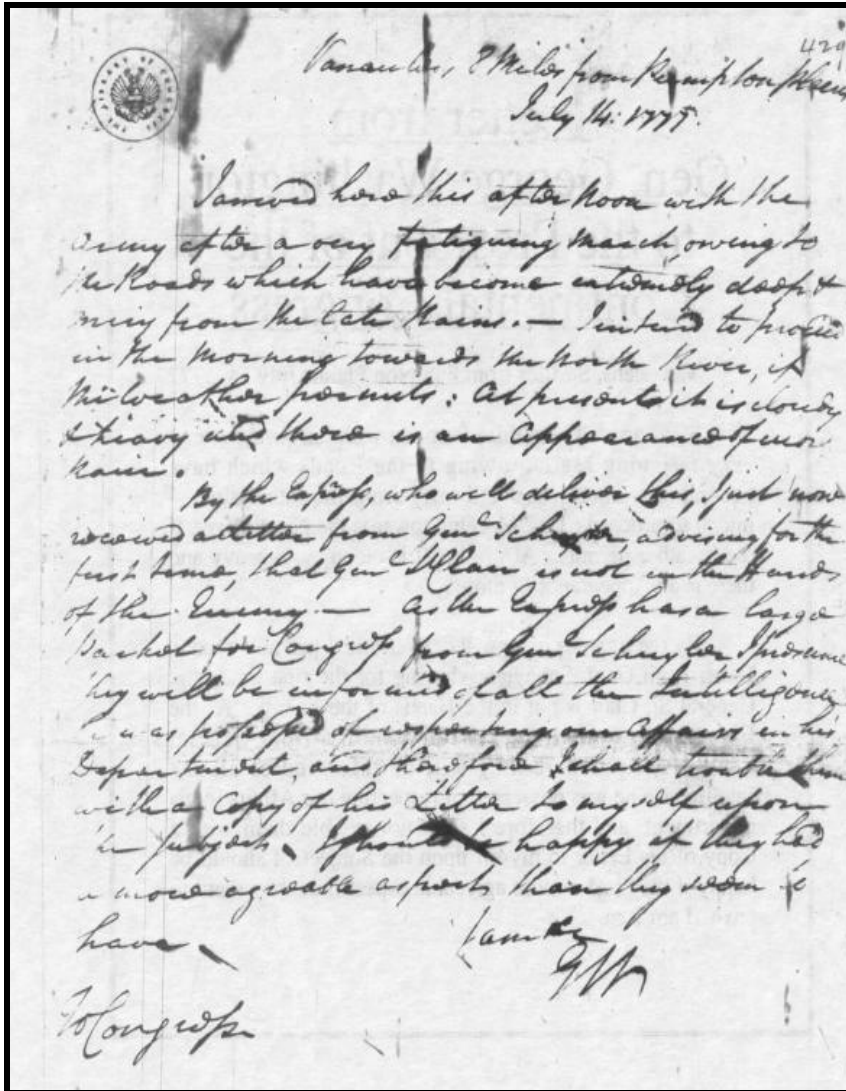 429
Vanaulens, 8 Miles from Pumpton Plains
July 14: 1777.
THE LIBRARY OF CONGRESS
I arrived here this after Noon with the
Army after a very fatiguing March, owing to
the Roads which have become extremely deep &
miry from the late Rains. — I intend to proceed
in the Morning towards the North River, if
the Weather permits: At present it is cloudy
& heavy and there is an Appearance of more
Rain.
By the Express, who will deliver this, I just now
received a Letter from Genl Schuyler advising for the
first time, that Genl St Clair is not in the Hands
of the Enemy. — As the Express has a large
Packet for Congress from Genl Schuyler I presume
they will be informed of all the Intelligence
he was possessed of respecting our Affairs in his
Department, and therefore I shall trouble them
with a Copy of his Letter to myself upon
the subject. I should be happy if they had
a more agreable aspect than they seem to
have.
I am &c
GW
To Congress